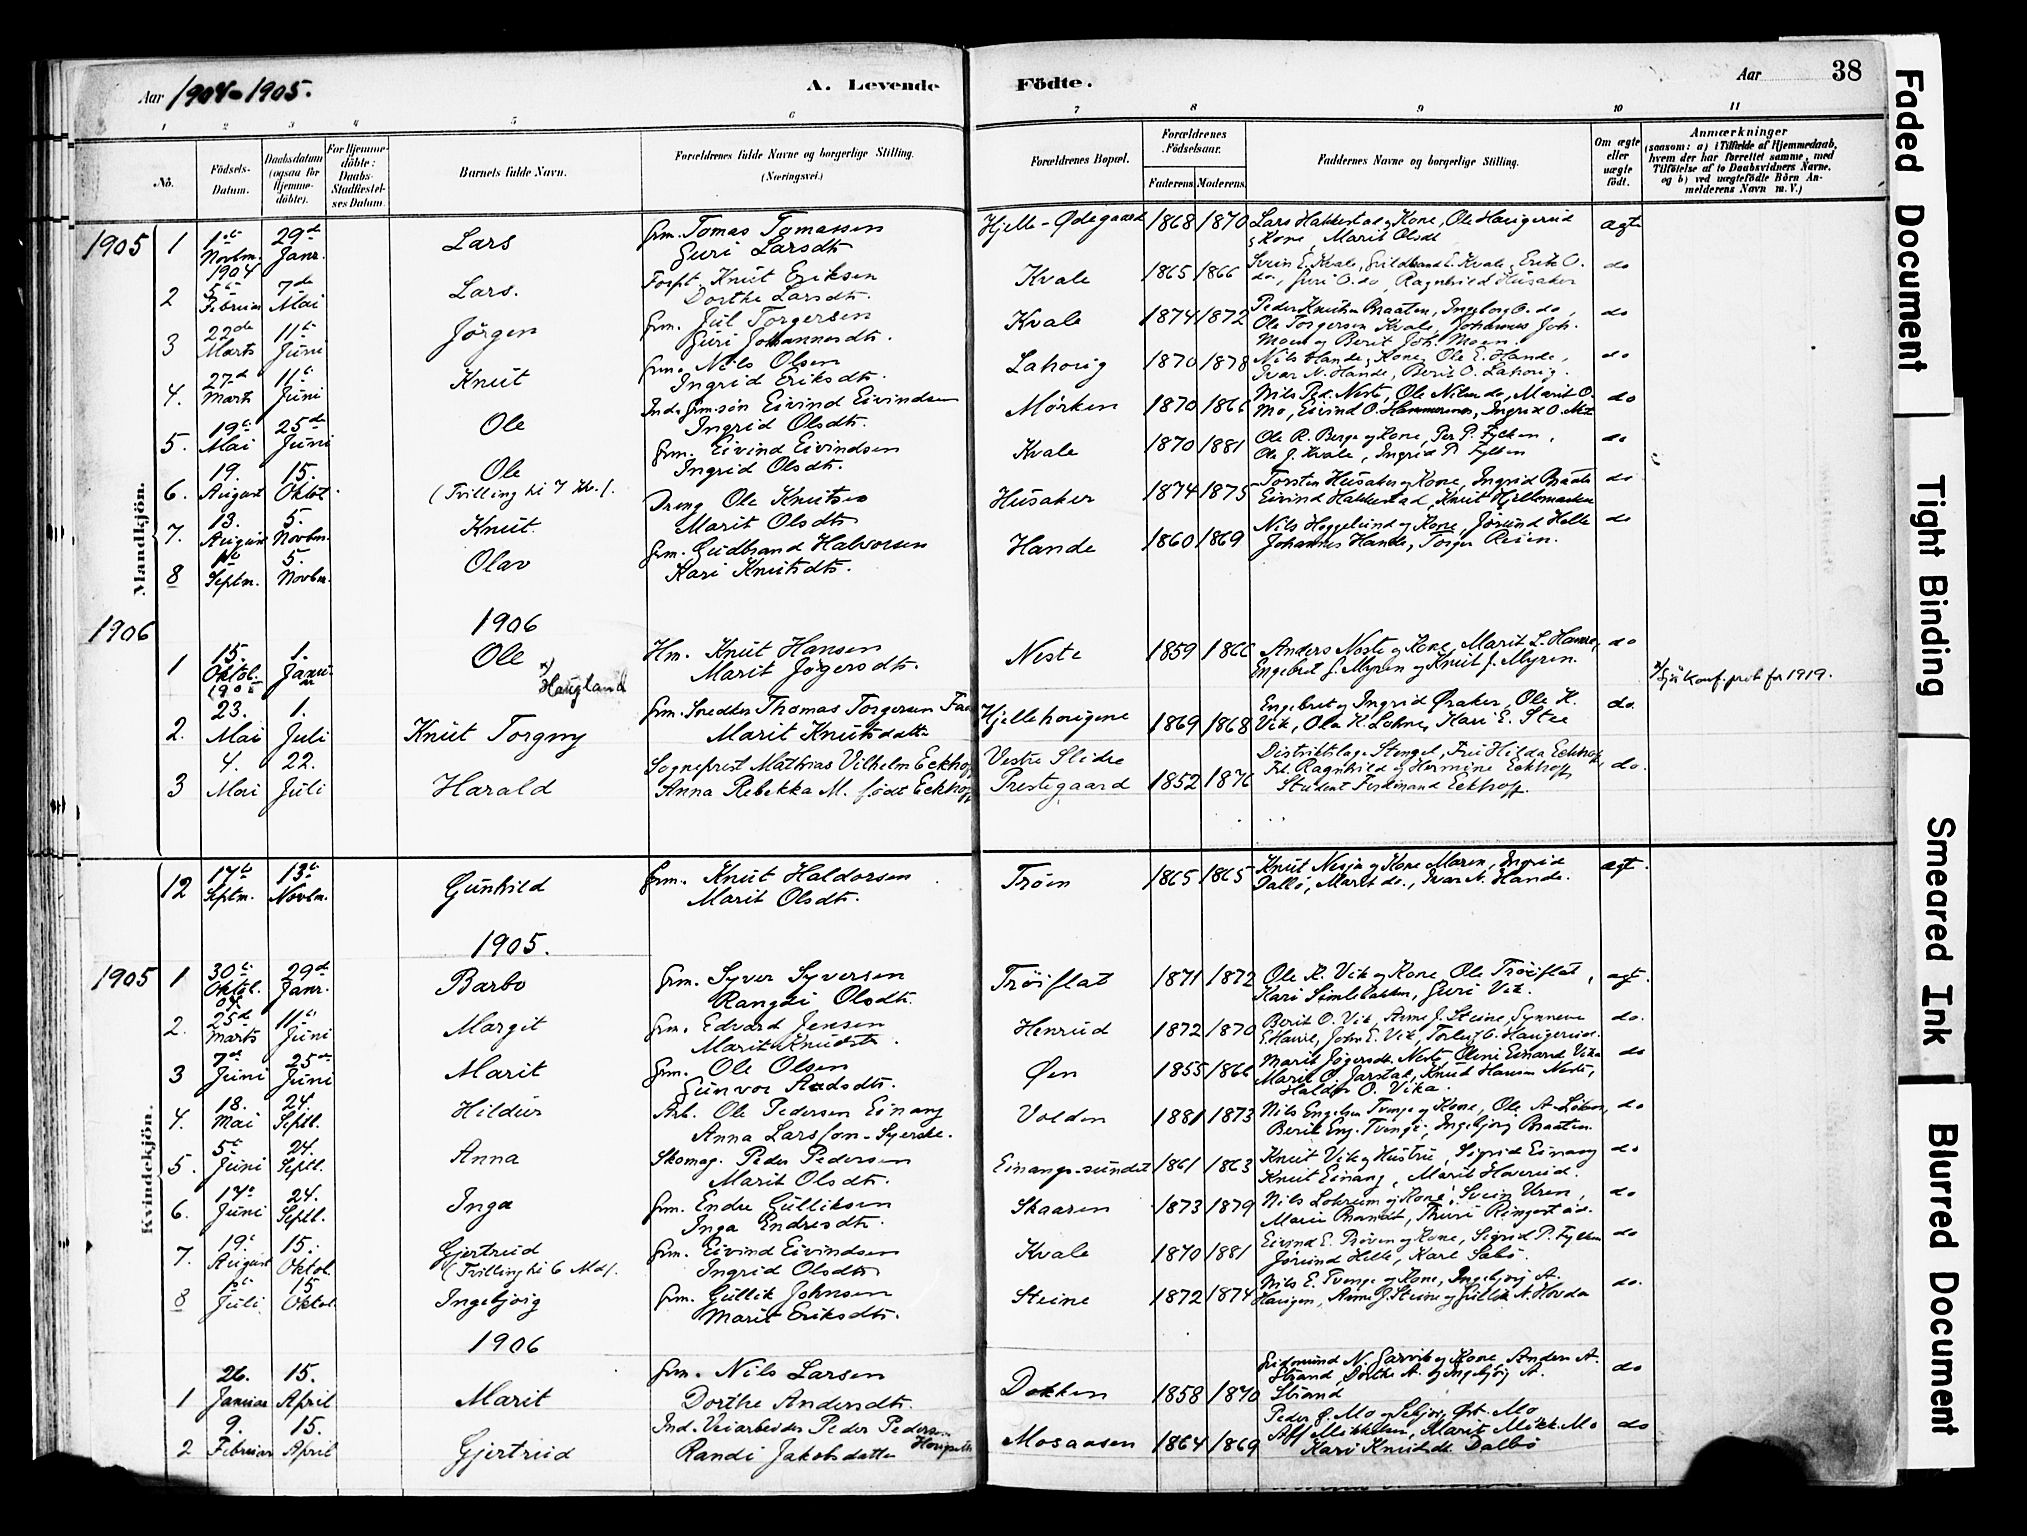 Aar 1904-1905.
A. Levende
Födte.
Aar
38
1 2 3 4 5 6 7 8 9 10 11
No.
Födsels-Datum.
Daabsdatum (ogsaa for Hjemme-döbte).
For Hjemme-döbte: Daabs-Stadfæstel-ses Datum.
Barnets fulde Navn.
Forældrenes fulde Navne og borgerlige Stilling. (Næringsvei.)
Forældrenes Bopæl.
Forældrenes Födselsaar.
Faderens. Moderens.
Faddernes Navne og borgerlige Stilling.
Om ægte eller uægte födt.
Anmærkninger
(saasom: a) i Tilfælde af Hjemmedaab, hvem der har forrettet samme, med Tilföielse af to Daabsvidners Navne, og b) ved uægtefödte Börn An-melderens Navn m. V.)
Mandkjön.
1905 1 1ste Novbm. 1904 29de Janr. Lars Grm. Tomas Tomassen Guri Larsdtr Hjelle-Ødegaard 1868 1870 Lars Hakkestad og Kone, Ole Haugerud og Kone, Marit Olsdt ægte
2 Februar 7de Mai Lars. Knut Eriksen Dorthe Larsdtr. Kvale 1865 1866 Svein E. Kvale, Guldbrand E. Kvale, Erik O. do, Guri O. do, Ragnhild Husaker do
3 22de Marts 11te Juni Jörgen Grm. Jul Torgersen Guri Johannesdtr. Kvale 1874 1872 Peder Knutsen Braaten, Ingeborg O. do, Ole Torgersen Kvale, Johannes Joh. Moen og Berit Joh. Moen. do
4. 27de Marts 11te Juni Knut Grm. Nils Olsen Ingrid Eriksdtr. Lahoug 1870 1878 Nils Hande og Kone, Ole E. Hande, Ivar N. Hande, Berit O. Lahoug. do
5. 19de Mai 25de Juni Ole Ind. Grm.sön Eivind Eivindsen Ingrid Olsdtr. Mörken 1870 1866 Nils Ped. Neste, Ole Nilsen do, Marit O. Mo, Eivind O. Hammersnes, Ingrid O. Neste do
6. 19. August 15. Oktbr. Ole (Tvilling til 7 Kv.). Grm. Eivind Eivindsen Ingrid Olsdtr. Kvale 1870 1881 Ole R. Berge og Kone, Per P. Fylken, Ole J. Kvale, Ingrid P. Fylken do
7. 13. August 5. Novbm. Knut. Dreng Ole Knutsen Marit Olsdtr Husaker 1874 1875 Torsten Husaker og Kone, Ingrid Braaten Eivind Hakkestad, Knut Hjellemarken do
8 1ste Septm. 5. Novbm. Olav Grm. Gudbrand Halvorsen Kari Knutsdtr. Hande 1860 1869 Nils Heggelund og Kone, Jörund Helle Johannes Hande, Torger Reien. do
1906
1906
1 15. Oktol. 1905 1. Januar Ole x) Haugland Hm. Knut Hansen Marit Jögersdtr. Neste 1859 1866 Anders Neste og Kone, Marit L. Haure, Engebret J. Myren og Knut J. Myren. do x) Sjå Konf. prot. for 1919.
2. 23. Mai 1. Juli Knut Torgny Grm. Snedker Thomas Torgersen Marit Knutsdatter Hjellehougene 1869 1868 Engebret og Ingrid Øraker, Ole K. Vik, Ola K. Lohne, Kari E. Stee do.
3 4. Mai 22. Juli Harald Sogneprest Mathias Vilhelm Eckhoff Anna Rebekka M. født Eckhoff Vestre Slidre Prestegaard 1852 1876 Distriktslæge Stengel, Fru Hilda Eckhoff, Frk. Ragnhild og Hermine Eckhoff, Student Ferdinand Eckhoff. do.
12 17de Septm. 13de Novbm. Gunhild Grm. Knut Haldorsen Marit Olsdtr. Tröen 1865 1865 Knut Nesja og Kone Maren, Ingrid Dalbö, Marit do., Ivar N. Hande. ægt.
1905.
Kvindekjön.
1905 1 30te Oktol. 04. 29de Janr. Barbo Grm. Syver Syversen Rangdi Olsdtr. Tröiflat 1871 1872 Ole K. Vik og Kone, Ole Tröiflat, Kari Simlebakken, Guri Vik. ægt.
2. 25de Marts 11te Juni Margit Grm. Edvard Jensen Marit Knudstr. Henrud 1872 1870 Berit O. Vik, Anne J. Steine, Synneve E. Haure, John E. Vik, Torleif O. Haugerud. do.
3 7de Juni 25de Juni Marit Grm. Ole Olsen Gunvor Aadsdtr. Øen 1855 1866 Marit Jögersdtr. Neste, Oline Einarsd. Vika Marit O. Jarstak, Knud Hansen Neste, Haldor O. Vika. do
4. 18. Mai 24. Septb. Hildur Arb. Ole Pedersen Einang Anna Larsson-Syerske. Volden 1881 1873 Nils Engelsen Tvenge og Kone, Ole A. Löken, Berit Eng. Tvenge, Ingebjörg Braaten. do
5. 5te Juni 24. Septb. Anna Skomag. Peder Pedersen Marit Olsdtr. Einangssundet 1861 1863 Knut Vik og Hustru, Sigrid Einang Knut Einang, Marit Haverud. do
6. 17de Juni 24. Septb. Inga Grm. Endre Gulliksen Inga Endresdtr. Skaaren 1873 1879 Nils Lokrum og Kone, Svein Uren, Maria Brandt, Thuri Ringestad. do
7. 19de August 15. Oktol. Gjertrud (Tvilling til 6 Md). Grm. Eivind Eivindsen Ingrid Olsdtr Kvale 1870 1881 Eivind E. Pröven og Kone, Sigrid P. Fylken Jörund Helle, Karl Sebö. do
8 1ste Juli 15 Oktol. Ingebjörg Grm. Gullik Johnsen Marit Eriksdtr. Steine 1872 1874 Nils E. Tvenge og Kone, Ingebjörg A. Haugen, Anne J. Steine og Gullik N. Hovda do.
1906
1 26. Januar 15. April Marit Grm. Nils Larsen Dorthe Andersdtr. Dokken 1858 1870 Gudmund N. Garvik og Kone Anders A. Strand, Dorthe A. og Ingebjörg A. Strand do
2 9. Februar 15. April Gjertrud Ind. Veiarbeider Peder Pedersen Randi Jakobsdatter Mosaasen 1864 1869 Peder O. Mo og Mikkelsen, Marit Mikk. Mo Kari Knutsdt. Dalbö do
Faded Document
Tight Binding
Smeared Ink
Blurred Document